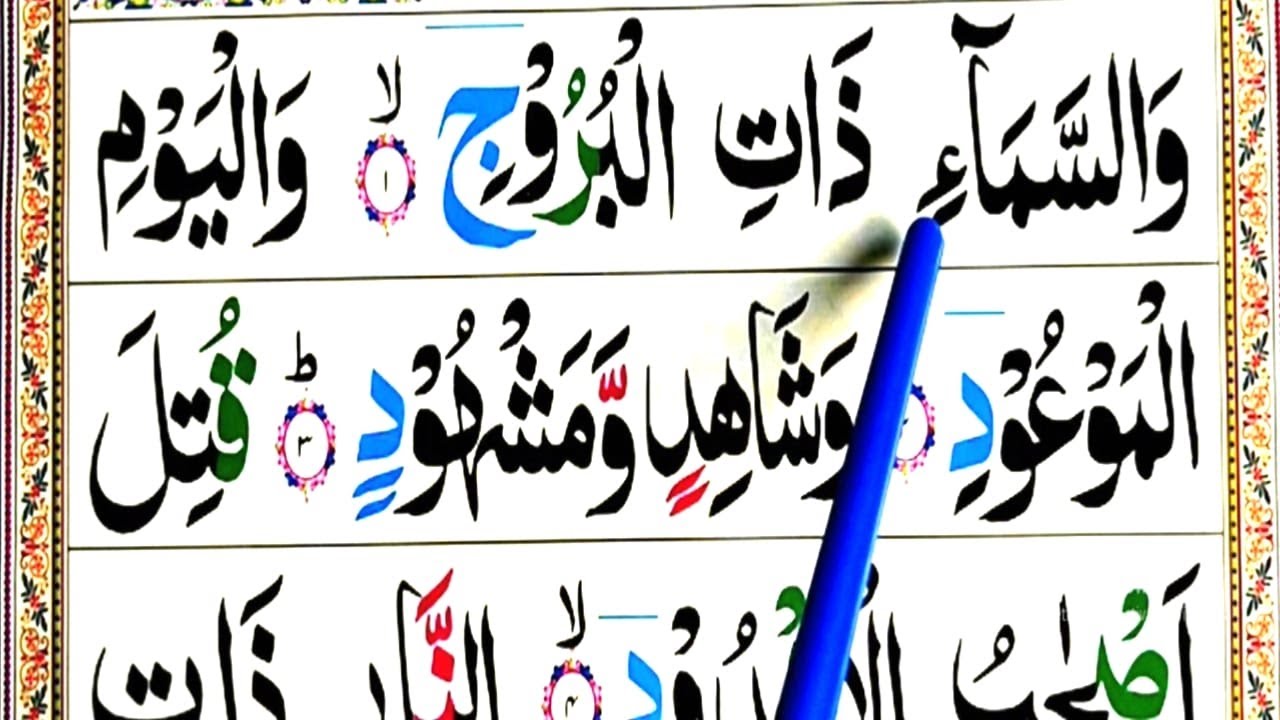 وَالسَّمَآءِ ذَاتِ الْبُرُوْجِ ۙ ۱ وَالْيَوْمِ
الْمَوْعُوْدِ وَشَاهِدٍ وَّمَشْهُوْدٍ ؕ ۳ قُتِلَ
اَصْحٰبُ ۙ ۴ النَّارِ ذَاتِ